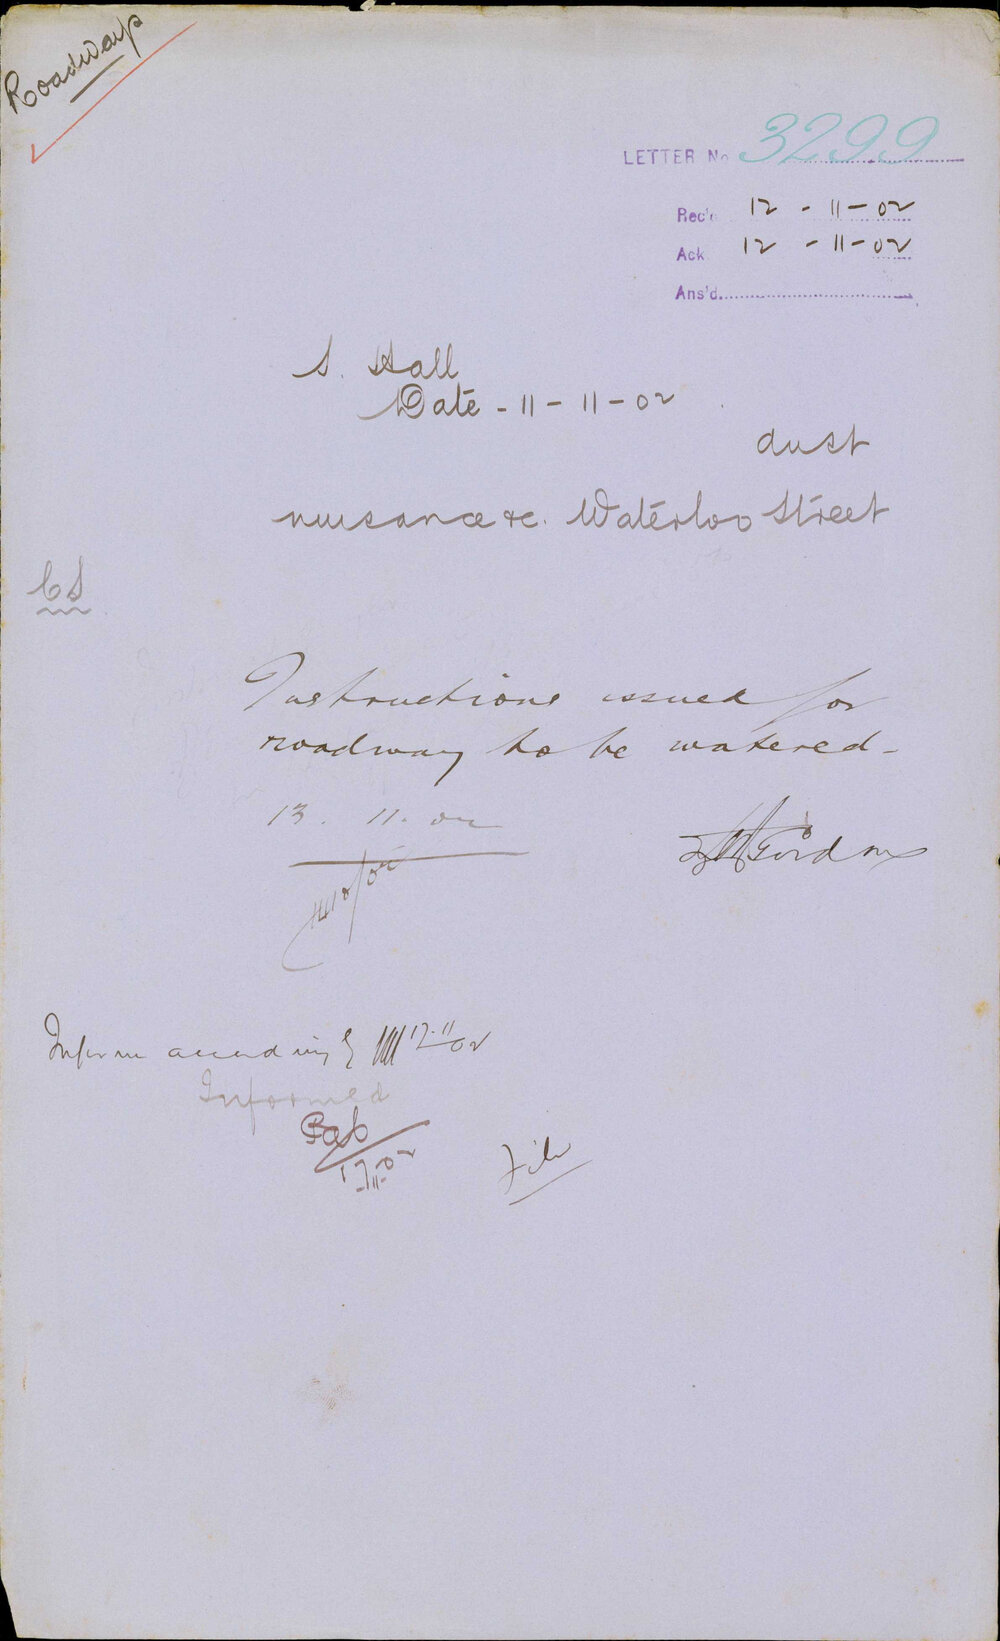 Roadways
LETTER No 3299
Rec'd 12-11-02
Ack 12-11-02
Ans'd
S. Hall
Date-11-11-02
dust
nuisance &c. Waterloo Street
CS
Instructions issued for
roadway to be watered-
13. 11. 02
Gordon
Inform accordingly 17.11/02
Informed
17-11-02
File